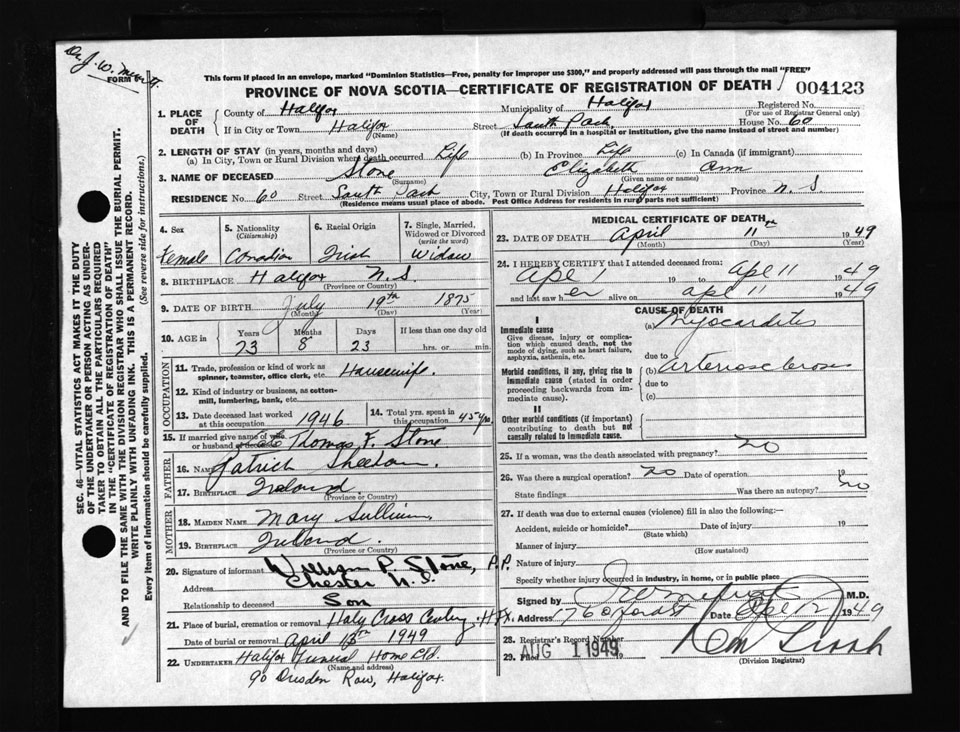 Dr. J. W. Merritt.
FORM 6
This form if placed in an envelope, marked "Dominion Statistics—Free, penalty for improper use $300," and properly addressed will pass through the mail "FREE"
PROVINCE OF NOVA SCOTIA—CERTIFICATE OF REGISTRATION OF DEATH
004123
1. PLACE OF DEATH
County of Halifax Municipality of Halifax Registered No.
(For use of Registrar General only)
If in City or Town Halifax Street South Park House No. 60
(Name) (If death occurred in a hospital or institution, give the name instead of street and number)
2. LENGTH OF STAY (in years, months and days)
(a) In City, Town or Rural Division where death occurred Life (b) In Province Life (c) In Canada (if immigrant)
3. NAME OF DECEASED Stone Elizabeth Ann
(Surname) (Given name or names)
RESIDENCE No. 60 Street South Park City, Town or Rural Division Halifax Province N. S
(Residence means usual place of abode. Post Office Address for residents in rural parts not sufficient)
4. Sex
Female
5. Nationality
(Citizenship)
Canadian
6. Racial Origin
Irish
7. Single, Married, Widowed or Divorced
(write the word)
Widow
8. BIRTHPLACE Halifax N. S
(Province or Country)
9. DATE OF BIRTH July 19th 1875
(Month) (Day) (Year)
10. AGE in
Years Months Days If less than one day old
73 8 23 hrs. or min.
OCCUPATION
11. Trade, profession or kind of work as spinner, teamster, office clerk, etc. Housewife.
12. Kind of industry or business, as cotton-mill, lumbering, bank, etc.
13. Date deceased last worked at this occupation 1946
14. Total yrs. spent in this occupation 45 yrs.
15. If married give name of wife or husband of deceased Thomas F. Stone
FATHER
16. Name Patrick Sheehan.
17. Birthplace Ireland.
(Province or Country)
MOTHER
18. Maiden Name Mary Sullivan.
19. Birthplace Ireland.
(Province or Country)
20. Signature of informant William P. Stone, P.P.
Address Chester N. S.
Relationship to deceased Son
21. Place of burial, cremation or removal Holy Cross Cemetery. HFX.
Date of burial or removal April 13th 1949
22. UNDERTAKER Halifax Funeral Home Ltd.
(Name and address)
90 Dresden Row, Halifax.
MEDICAL CERTIFICATE OF DEATH
23. DATE OF DEATH April 11th 1949
(Month) (Day) (Year)
24. I HEREBY CERTIFY that I attended deceased from:
Apl 1 19 to Apl 11 1949
and last saw her alive on apl 11 1949
CAUSE OF DEATH
I
Immediate cause
Give disease, injury or complication which caused death, not the mode of dying, such as heart failure, asphyxia, asthenia, etc.
(a) Myocarditis
due to
Morbid conditions, if any, giving rise to immediate cause (stated in order proceeding backwards from immediate).
(b) arteriosclerosis
due to
(c)
II
Other morbid conditions (if important) contributing to death but not causally related to immediate cause.
25. If a woman, was the death associated with pregnancy? no
26. Was there a surgical operation? no Date of operation 19
State findings Was there an autopsy? no
27. If death was due to external causes (violence) fill in also the following:—
Accident, suicide or homicide? Date of injury 19
(State which)
Manner of injury
(How sustained)
Nature of injury
Specify whether injury occurred in industry, in home, or in public place
Signed by M.D.
Address 176 Oxford St Date Apl 12 1949
28. Registrar's Record Number
29. Filed AUG 1 1949
(Division Registrar)
SEC. 46—VITAL STATISTICS ACT MAKES IT THE DUTY
OF THE UNDERTAKER OR PERSON ACTING AS UNDER-
TAKER TO OBTAIN ALL THE PARTICULARS REQUIRED
IN THE "CERTIFICATE OF REGISTRATION OF DEATH"
AND TO FILE THE SAME WITH THE DIVISION REGISTRAR WHO SHALL ISSUE THE BURIAL PERMIT.
WRITE PLAINLY WITH UNFADING INK. THIS IS A PERMANENT RECORD.
Every item of information should be carefully supplied. (See reverse side for instructions.)